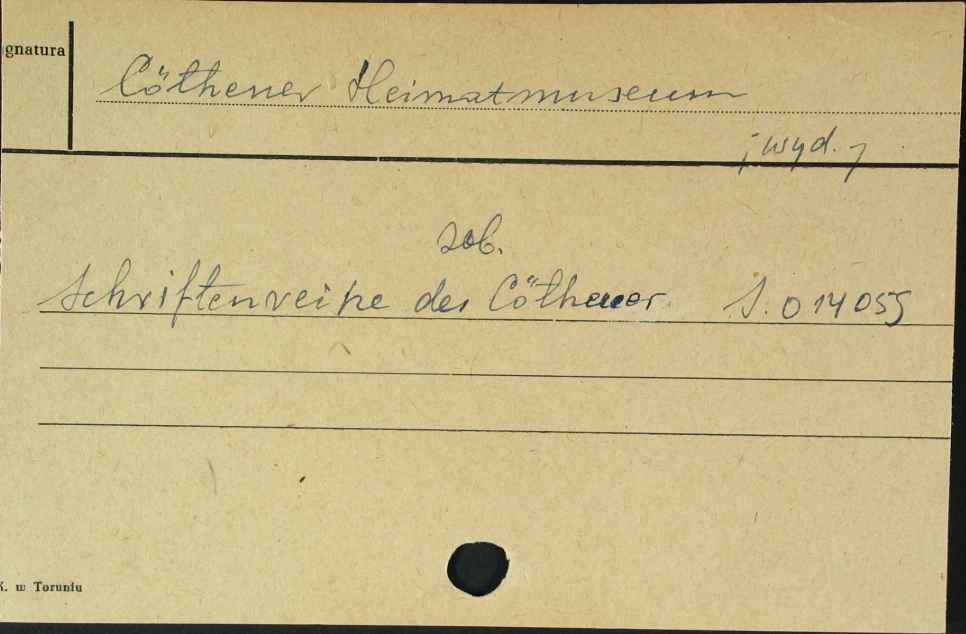 gnatura
Cöthener Heimatmuseum
[wyd.]
zob.
Schriftenreihe des Cöthener S. 014055
K. w Toruniu